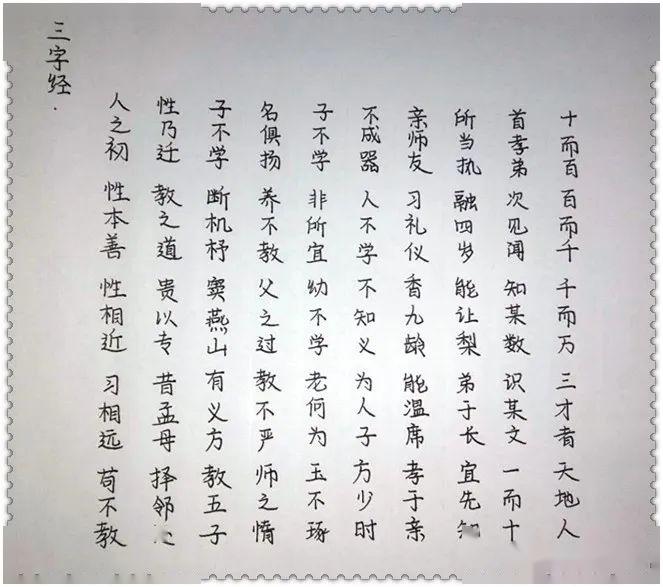 三字经.
人之初 性本善 性相近 习相远 苟不教
性乃迁 教之道 贵以专 昔孟母 择邻
子不学 断机杼 窦燕山 有义方 教五子
名俱扬 养不教 父之过 教不严 师之惰
子不学 非所宜 幼不学 老何为 玉不琢
不成器 人不学 不知义 为人子 方少时
亲师友 习礼仪 香九龄 能温席 孝于亲
所当执 融四岁 能让梨 弟于长 宜先知
首孝弟 次见闻 知某数 识某文 一而十
十而百 百而千 千而万 三才者 天地人